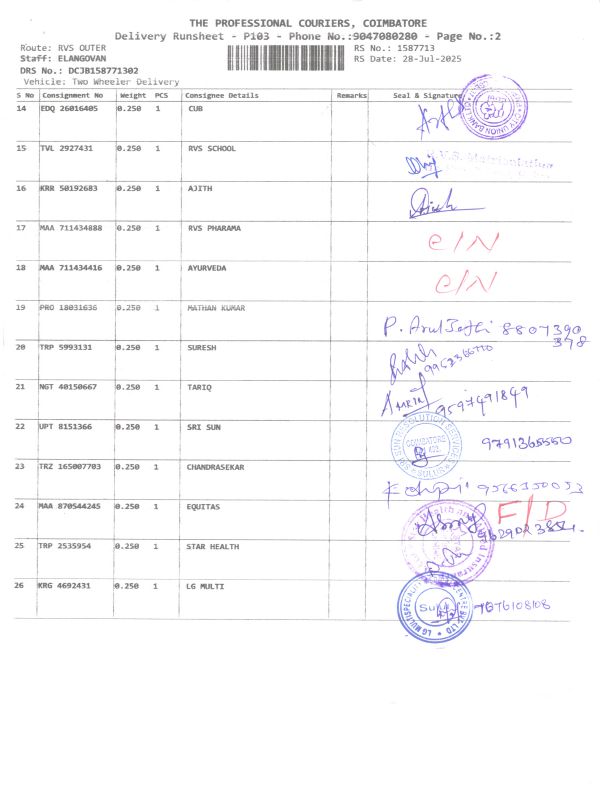 THE PROFESSIONAL COURIERS, COIMBATORE
Delivery Runsheet - P103 - Phone No.:9047080280 - Page No.:2
Route: RVS OUTER RS No.: 1587713
Staff: ELANGOVAN RS Date: 28-Jul-2025
DRS No.: DCJB158771302
Vehicle: Two Wheeler Delivery
S No Consignment No Weight PCS Consignee Details Remarks Seal & Signature
14 EDQ 26016405 0.250 1 CUB
CITY UNION BANK LTD
15 TVL 2927431 0.250 1 RVS SCHOOL
16 KRR 50192683 0.250 1 AJITH
17 MAA 711434888 0.250 1 RVS PHARAMA C/N
18 MAA 711434416 0.250 1 AYURVEDA C/N
19 PRO 18031636 0.250 1 MATHAN KUMAR P. Arul Jothi 8807390
378
20 TRP 5993131 0.250 1 SURESH
21 NGT 40150667 0.250 1 TARIQ 9597491849
22 UPT 8151366 0.250 1 SRI SUN SOLUTION SERVICES COIMBATORE 9791365550
23 TRZ 165007703 0.250 1 CHANDRASEKAR
24 MAA 870544245 0.250 1 EQUITAS F/D
25 TRP 2535954 0.250 1 STAR HEALTH
26 KRG 4692431 0.250 1 LG MULTI 7676108108
LG MULTISPECIALITY CENTRE PVT. LTD